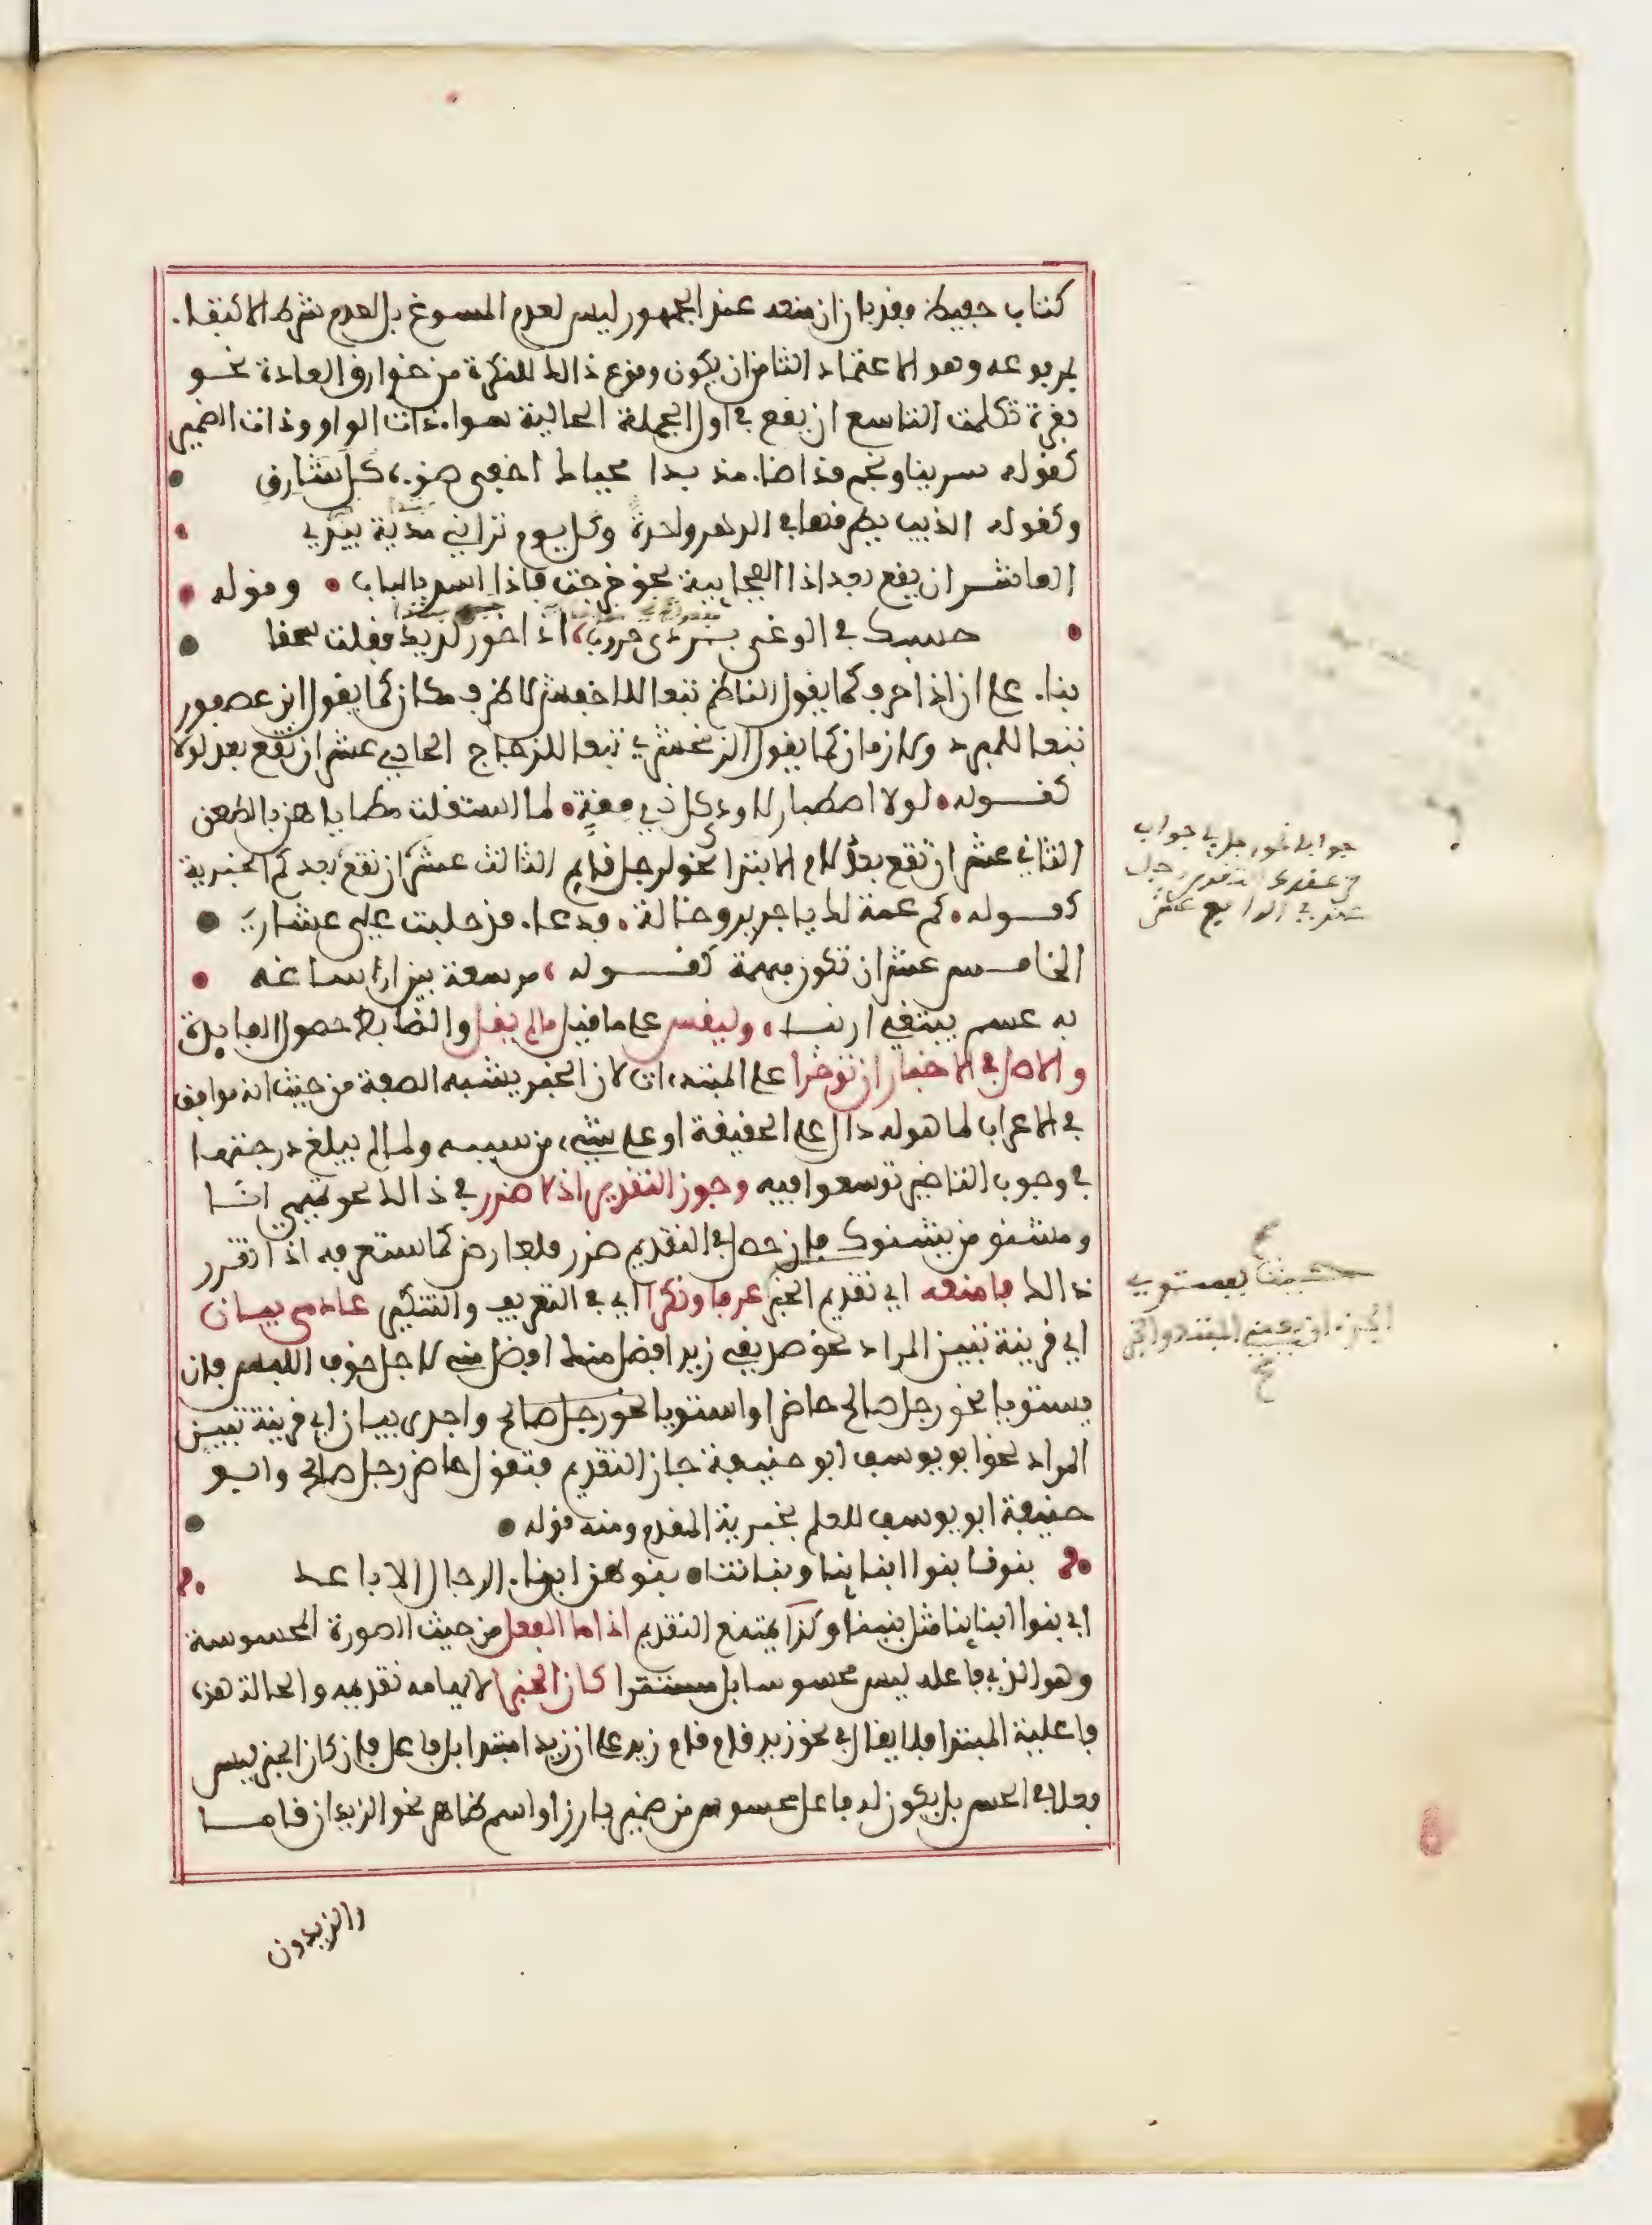 كتاب حفيظ فقد بان ان منعه عند الجمهور ليس لعدم المسوغ بل لعدم شرط الاكتفاء
بمرفوعه وهو الاعتماد الثامن ان يكون وقوع ذالك للنكرة من خوارق العادة نحو
بقرة تكلمت التاسع ان يقع في اول الجملة الحالية سواء ذات الواو وذات الضمير
كقوله سرينا ونجم قد اضاء مذ بدا محياك اخفى ضوءه كل شارق
وكقوله الذيب يطرقها في الدهر واحدة وكل يوم تراني مدية بيدي
العاشر ان يقع بعد اذا الفجاءية نحو خرجت فاذا اسد بالباب وقوله
حسبتك في الوغى بردى حروب اذا خور لديك فقلت سحقا
بناء على ان اذا حرف كما يقول الناظم تبعا للاخفش لا ظرف مكان كما يقول ابن عصفور
تبعا للمبرد ولا زمان كما يقول الزمخشري تبعا للزجاج الحادي عشر ان تقع بعد لولا
كقوله لولا اصطبار لاودى كل ذي مقة لما استقلت مطاياهن بالظعن
الثاني عشر ان تقع بعد لام الابتدا نحو لرجل قايم الثالث عشر ان تقع بعد كم الخبرية
كقوله كم عمة لك يا جرير وخالة فدعاء قد حلبت علي عشاري
الخامس عشر ان تكون مبهمة كقوله مرسعة بين ارساغه
به عسم يبتغي ارنبا وليقس على ما قيل ما لم يقل والضابط حصول الفايدة
والاصل في الاخبار ان توخرا على المبتدءات لان الخبر يشبه الصفة من حيث انه موافق
في الاعراب لما هو له دال على الحقيقة او على شيء من سببه ولما لم يبلغ درجتها
في وجوب التاخير توسعوا فيه وجوزوا التقديم اذ لا ضرر في ذالك نحو تميمي انا
ومشنو من يشنوك فان حصل في التقديم ضرر فلعارض كما ستعرفه اذا تقرر
ذالك فامنعه اي تقديم الخبر عرفا ونكرا اي في التعريف والتنكير عادمي بيان
اي قرينة تبين المراد نحو صديقي زيد افضل منك افضل مني لاجل خوف اللبس فان لم
يستويا نحو رجل صالح حاضر او استويا نحو رجل صالح واجدى بيان اي قرينة تبين
المراد نحو ابو يوسف ابو حنيفة جاز التقديم فتقول حاضر رجل صالح وابو
حنيفة ابو يوسف للعلم بخبرية المقدم ومنه قوله
بنونا بنوا ابناينا وبناتنا بنوهن ابناء الرجال الاباعد
اي بنوا ابناينا مثل بنينا وكذا يمتنع التقديم اذا ما الفعل من حيث الصورة المحسوسة
وهو الذي فاعله ليس محسوسا بل مستترا كان الخبرا لايهامه تقديمه والحالة هذه
فاعلية المبتدا فلا يقال في نحو زيد قام قام زيد على ان زيد مبتدا بل فاعل فان كان الخبر ليس
فعلا في الحس بل يكون له فاعل محسوس من ضمير بارز او اسم ظاهر نحو الزيدان قاما
والزيدون